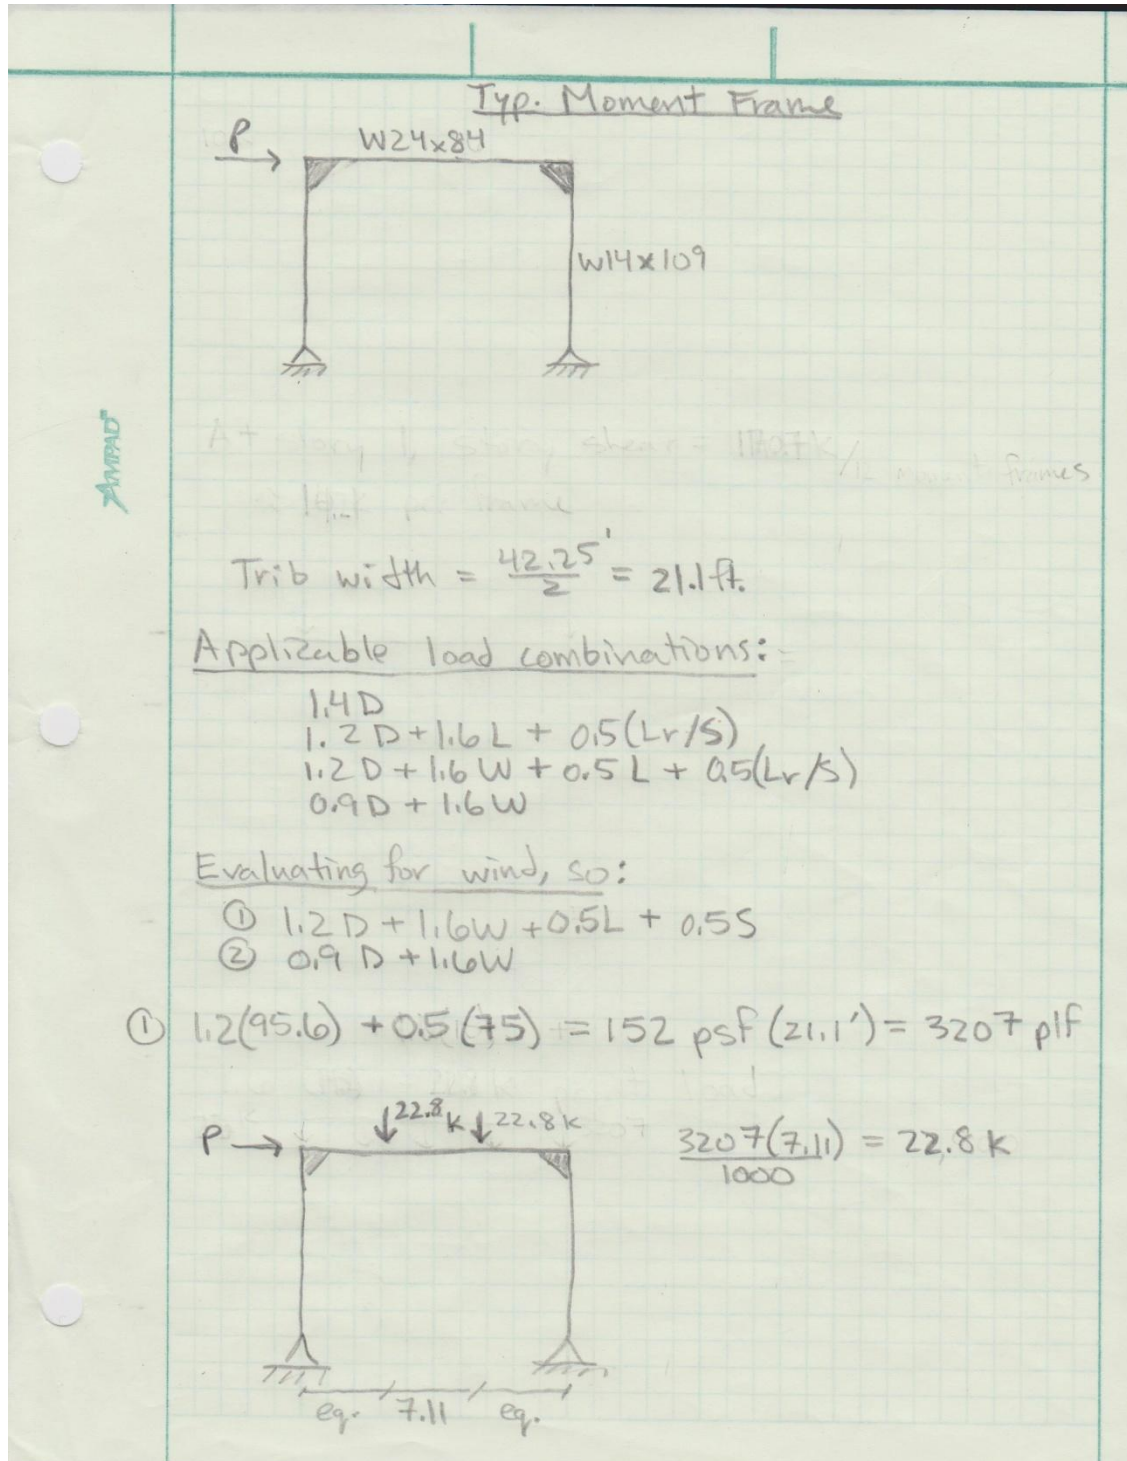 Typ. Moment Frame
P
W24x84
W14x109
AMPAD
At story 1, story shear = 170.7k/12 moment frames
= per frame
Trib width = 42.25'/2 = 21.1 ft.
Applicable load combinations:
1.4D
1.2D+1.6L + 0.5(Lr/S)
1.2D+1.6W+0.5L+0.5(Lr/S)
0.9D+1.6W
Evaluating for wind, so:
① 1.2D+1.6W+0.5L+0.5S
② 0.9D+1.6W
① 1.2(95.6)+0.5(75) = 152 psf(21.1') = 3207 plf
22.8k 22.8k
P
3207(7.11)/1000 = 22.8 k
eq. 7.11 eq.